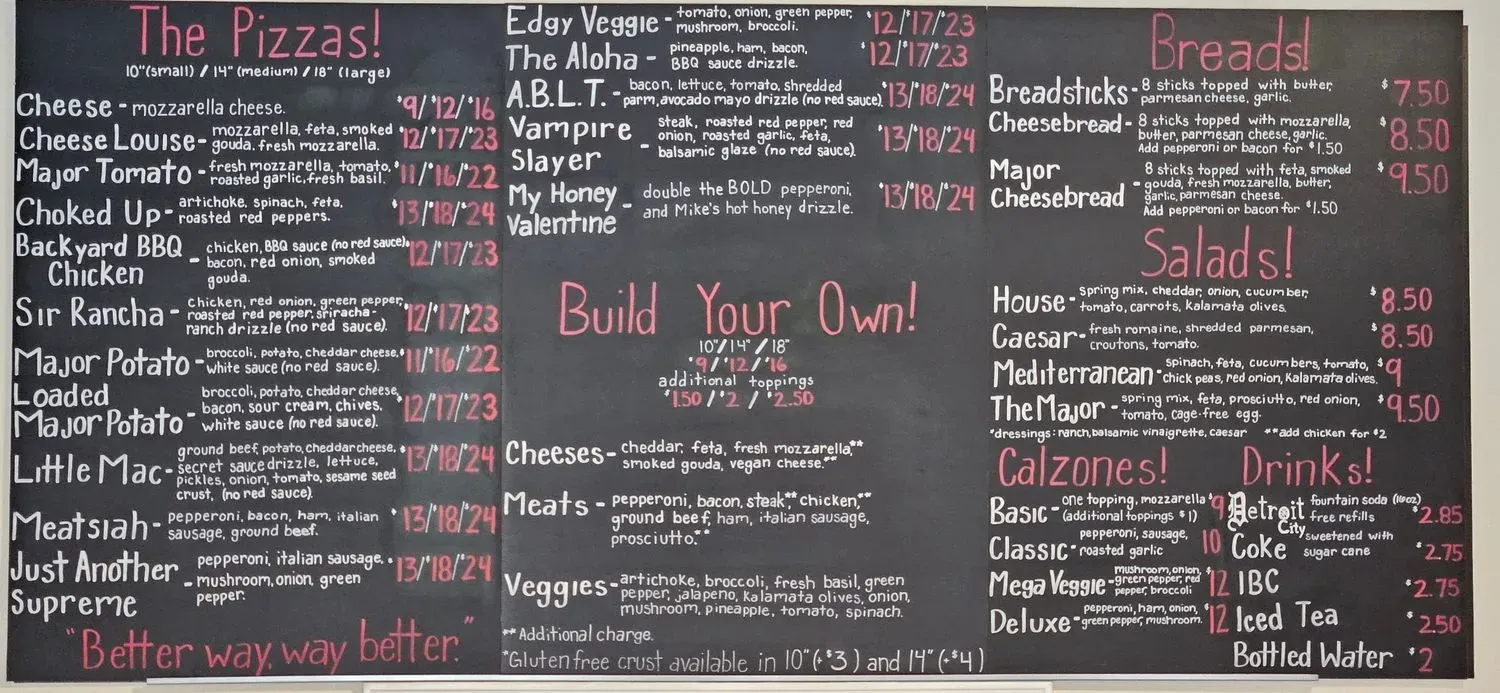 The Pizzas!
10"(small) / 14" (medium) / 18" (large)
Cheese - mozzarella cheese. $9/$12/$16
Cheese Louise - mozzarella, feta, smoked gouda. fresh mozzarella. $12/$17/$23
Major Tomato - fresh mozzarella, tomato, roasted garlic, fresh basil. $11/$16/$22
Choked Up - artichoke, spinach, feta, roasted red peppers. $13/$18/$24
Backyard BBQ
Chicken - chicken, BBQ sauce (no red sauce), bacon, red onion, smoked gouda. $12/$17/$23
Sir Rancha - chicken, red onion, green pepper, roasted red pepper, sriracha-ranch drizzle (no red sauce). $12/$17/$23
Major Potato - broccoli, potato, cheddar cheese, white sauce (no red sauce). $11/$16/$22
Loaded
Major Potato - broccoli, potato, cheddar cheese, bacon, sour cream, chives, white sauce (no red sauce). $12/$17/$23
Little Mac - ground beef, potato, cheddar cheese, secret sauce drizzle, lettuce, pickles, onion, tomato, sesame seed crust, (no red sauce). $13/$18/$24
Meatsiah - pepperoni, bacon, ham, italian sausage, ground beef. $13/$18/$24
Just Another
Supreme - pepperoni, italian sausage, mushroom, onion, green pepper. $13/$18/$24
"Better way, way better."
Edgy Veggie - tomato, onion, green pepper, mushroom, broccoli. $12/$17/$23
The Aloha - pineapple, ham, bacon, BBQ sauce drizzle. $12/$17/$23
A.B.L.T. - bacon, lettuce, tomato, shredded parm, avocado mayo drizzle (no red sauce). $13/$18/$24
Vampire
Slayer - steak, roasted red pepper, red onion, roasted garlic, feta, balsamic glaze (no red sauce). $13/$18/$24
My Honey
Valentine - double the BOLD pepperoni, and Mike's hot honey drizzle. $13/$18/$24
Build Your Own!
10"/14"/18"
$9/$12/$16
additional toppings
$1.50 / $2 / $2.50
Cheeses - cheddar, feta, fresh mozzarella,**
smoked gouda, vegan cheese.**
Meats - pepperoni, bacon, steak**, chicken,**
ground beef, ham, italian sausage,
prosciutto.**
Veggies - artichoke, broccoli, fresh basil, green
pepper, jalapeno, kalamata olives, onion,
mushroom, pineapple, tomato, spinach.
** Additional charge.
*Gluten free crust available in 10" (+$3) and 14" (+$4)
Breads!
Breadsticks - 8 sticks topped with butter, parmesan cheese, garlic. $7.50
Cheesebread - 8 sticks topped with mozzarella, butter, parmesan cheese, garlic. Add pepperoni or bacon for $1.50 $8.50
Major
Cheesebread - 8 sticks topped with feta, smoked gouda, fresh mozzarella, butter, garlic, parmesan cheese. Add pepperoni or bacon for $1.50 $9.50
Salads!
House - spring mix, cheddar, onion, cucumber, tomato, carrots, kalamata olives. $8.50
Caesar - fresh romaine, shredded parmesan, croutons, tomato. $8.50
Mediterranean - spinach, feta, cucumbers, tomato, chick peas, red onion, kalamata olives. $9
The Major - spring mix, feta, prosciutto, red onion, tomato, cage-free egg. $9.50
*dressings: ranch, balsamic vinaigrette, caesar **add chicken for $2
Calzones!
Basic - one topping, mozzarella (additional toppings $1) $9
Classic - pepperoni, sausage, roasted garlic 10
Mega Veggie - mushroom, onion, green pepper, red pepper, broccoli $12
Deluxe - pepperoni, ham, onion, green pepper, mushroom. $12
Drinks!
Detroit City fountain soda (16oz) free refills $2.85
Coke sweetened with sugar cane $2.75
IBC $2.75
Iced Tea $2.50
Bottled Water $2